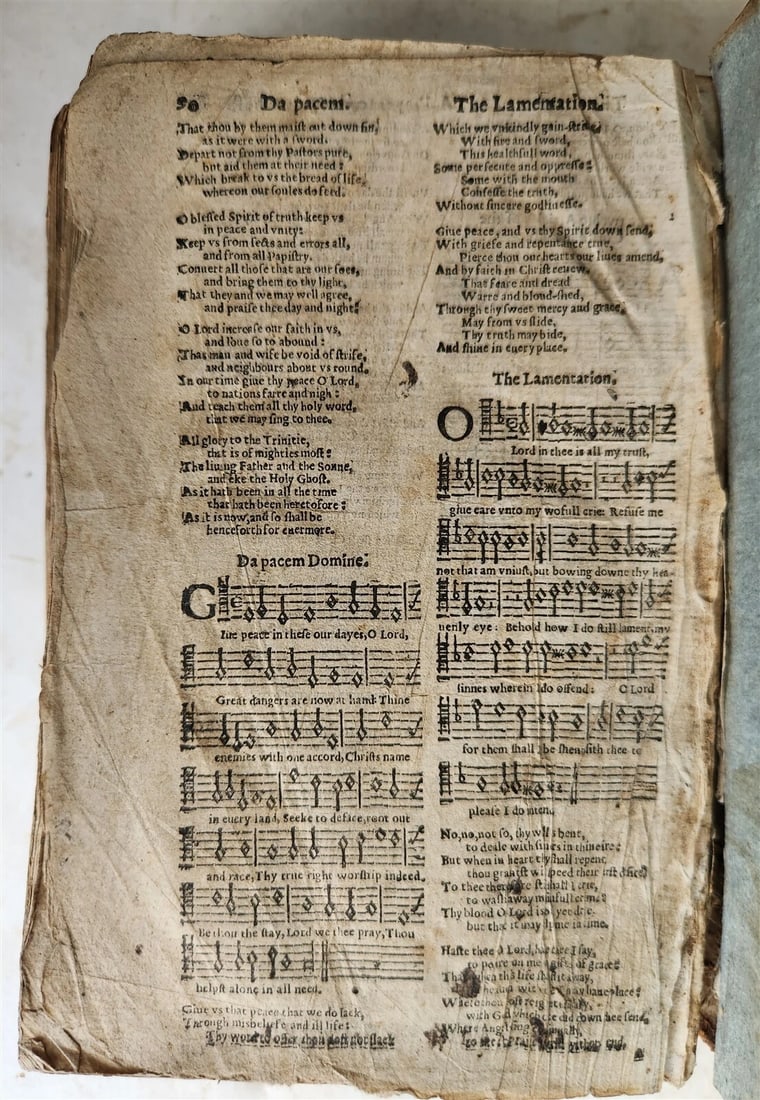 90 Da pacem.
That thou by them maist cut down sin,
as it were with a sword.
Depart not from thy Pastors pure,
but aid them at their need:
Which break to vs the bread of life,
whereon our soules do feed.
O blessed Spirit of truth keep vs
in peace and vnity:
Keep vs from sects and errors all,
and from all Papistry.
Conuert all those that are our foes,
and bring them to thy light,
That they and we may well agree,
and praise thee day and night.
O Lord increase our faith in vs,
and loue so to abound:
That man and wife be void of strife,
and neighbours about vs round.
In our time giue thy peace O Lord,
to nations farre and nigh:
And teach them all thy holy word,
that we may sing to thee.
All glory to the Trinitie,
that is of mighties most:
The liuing Father and the Sonne,
and eke the Holy Ghost.
As it hath been in all the time
that hath been heretofore:
As it is now, and so shall be
henceforth for euermore.
Da pacem Domine.
GIue peace in these our dayes, O Lord,
Great dangers are now at hand: Thine
enemies with one accord, Christs name
in euery land, Seeke to deface, root out
and race, Thy true right worship indeed.
Be thou the stay, Lord we thee pray, Thou
helpst alone in all need.
Giue vs that peace that we do lack,
Through misbeliefe and ill life:
Thy word to offer thou dost not slack
The Lamentation.
Which we vnkindly gain-striue,
With fire and sword,
This healthfull word,
Some persecute and oppresse:
Some with the mouth
Confesse the truth,
Without sincere godlinesse.
Giue peace, and vs thy Spirit down send,
With griefe and repentance true,
Pierce thou our hearts our liues amend,
And by faith in Christ renew.
That feare and dread
Warre and bloud-shed,
Through thy sweet mercy and grace,
May from vs slide,
Thy truth may bide,
And shine in euery place.
The Lamentation.
O Lord in thee is all my trust,
giue eare vnto my wofull crie: Refuse me
not that am vniust, but bowing downe thy hea-
uenly eye: Behold how I do still lament, my
sinnes wherein I do offend: O Lord
for them shall I be shent, sith thee to
please I do intend,
No, no, not so, thy will is bent,
to deale with sinners in thine ire:
But when in heart they shall repent
thou grantst with speed their iust desire:
To thee therefore still shall I crie,
to wash away my sinfull crime:
Thy blood O Lord is not yet drie,
but that it may me in time.
Haste thee O Lord, haste thee I say,
to poure on me gifts of grace:
That when this life shall away,
haue place:
with God
Where Angels